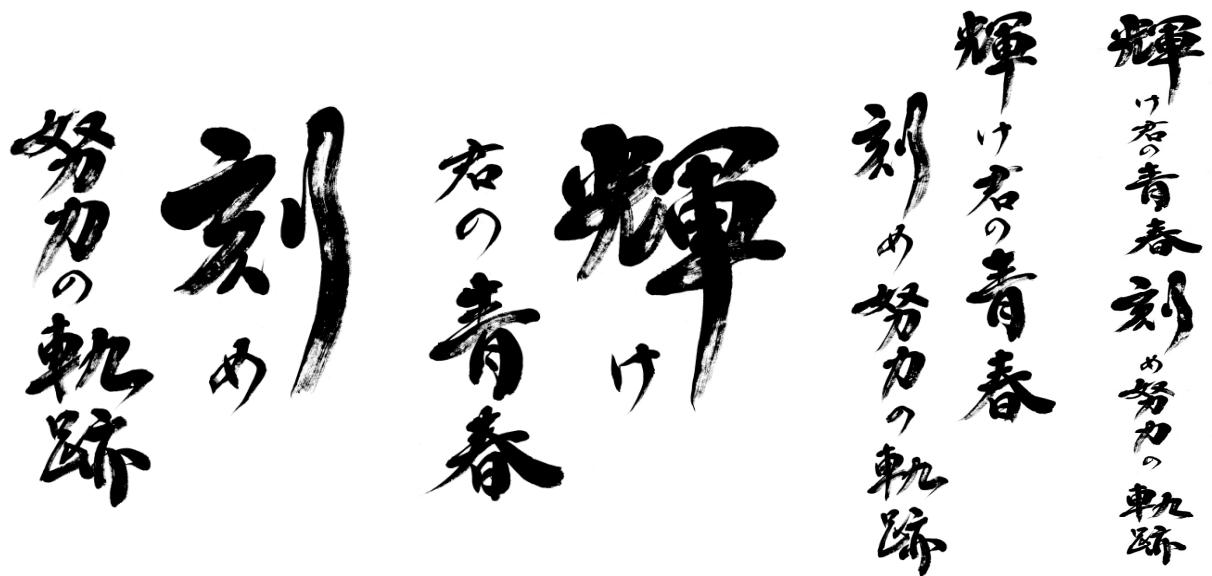 輝け君の青春刻め努力の軌跡
輝け君の青春
刻め努力の軌跡
輝け
君の青春
刻め
努力の軌跡